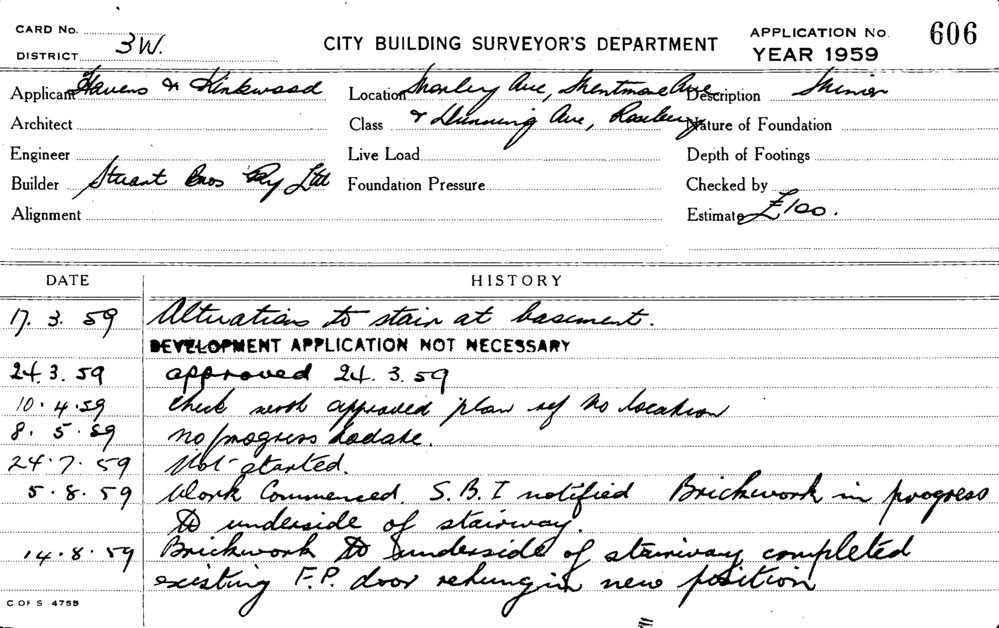 CARD No.
DISTRICT 3W.
CITY BUILDING SURVEYOR'S DEPARTMENT
APPLICATION No. 606
YEAR 1959
Applicant Havens & Kirkwood
Location Morley Ave, Mentmore Ave
Description Minor
Architect
Class & Dunning Ave, Rosebery
Nature of Foundation
Engineer
Live Load
Depth of Footings
Builder Stuart Bros Pty Ltd
Foundation Pressure
Checked by
Alignment
Estimate £100.
DATE HISTORY
17. 3. 59 Alterations to stair at basement.
DEVELOPMENT APPLICATION NOT NECESSARY
24. 3. 59 approved 24. 3. 59
10. 4. 59 check approved plan ref no location
8. 5. 59 no progress todate.
24. 7. 59 Not started.
5. 8. 59 Work Commenced. S.B.I notified Brickwork in progress
to underside of stairway.
14. 8. 59 Brickwork to underside of stairway completed
existing F.P. door rehung in new position
C OF S 4755